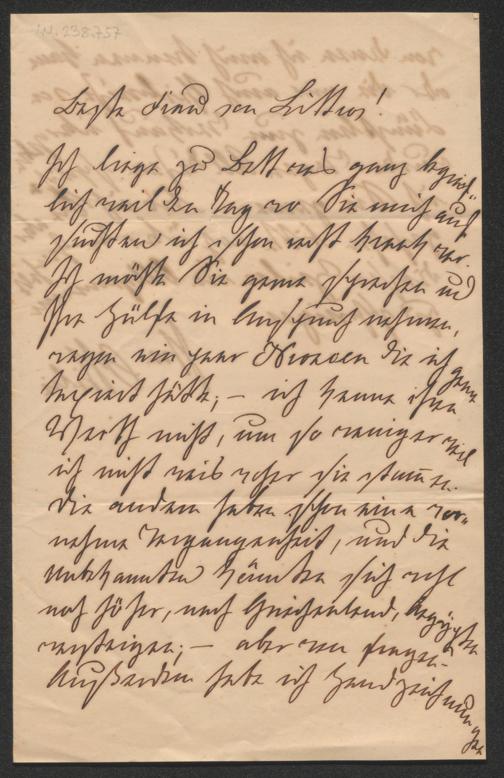 I.N. 238.757
Beste Frau von Littrow!
Ich liege zu Bett was ganz begreif-
lich weil den Tag wo Sie mich auf
suchten ich schon recht krank war.
Ich möchte Sie gerne sprechen und
Ihre Hülfe in Anspruch nehmen,
wegen ein paar die ich gerne
hätte; – ich kenne ihren
Werth nicht, um so weniger weil
ich nicht weis woher sie stammen.
Die andern haben schon eine vor-
nehme Vergangenheit, und die
unbekannten könnten sich wohl
noch höher, nach Griechenland, Aegypten
versteigen; – aber wen fragen.
Außerdem habe ich Handzeichnungen